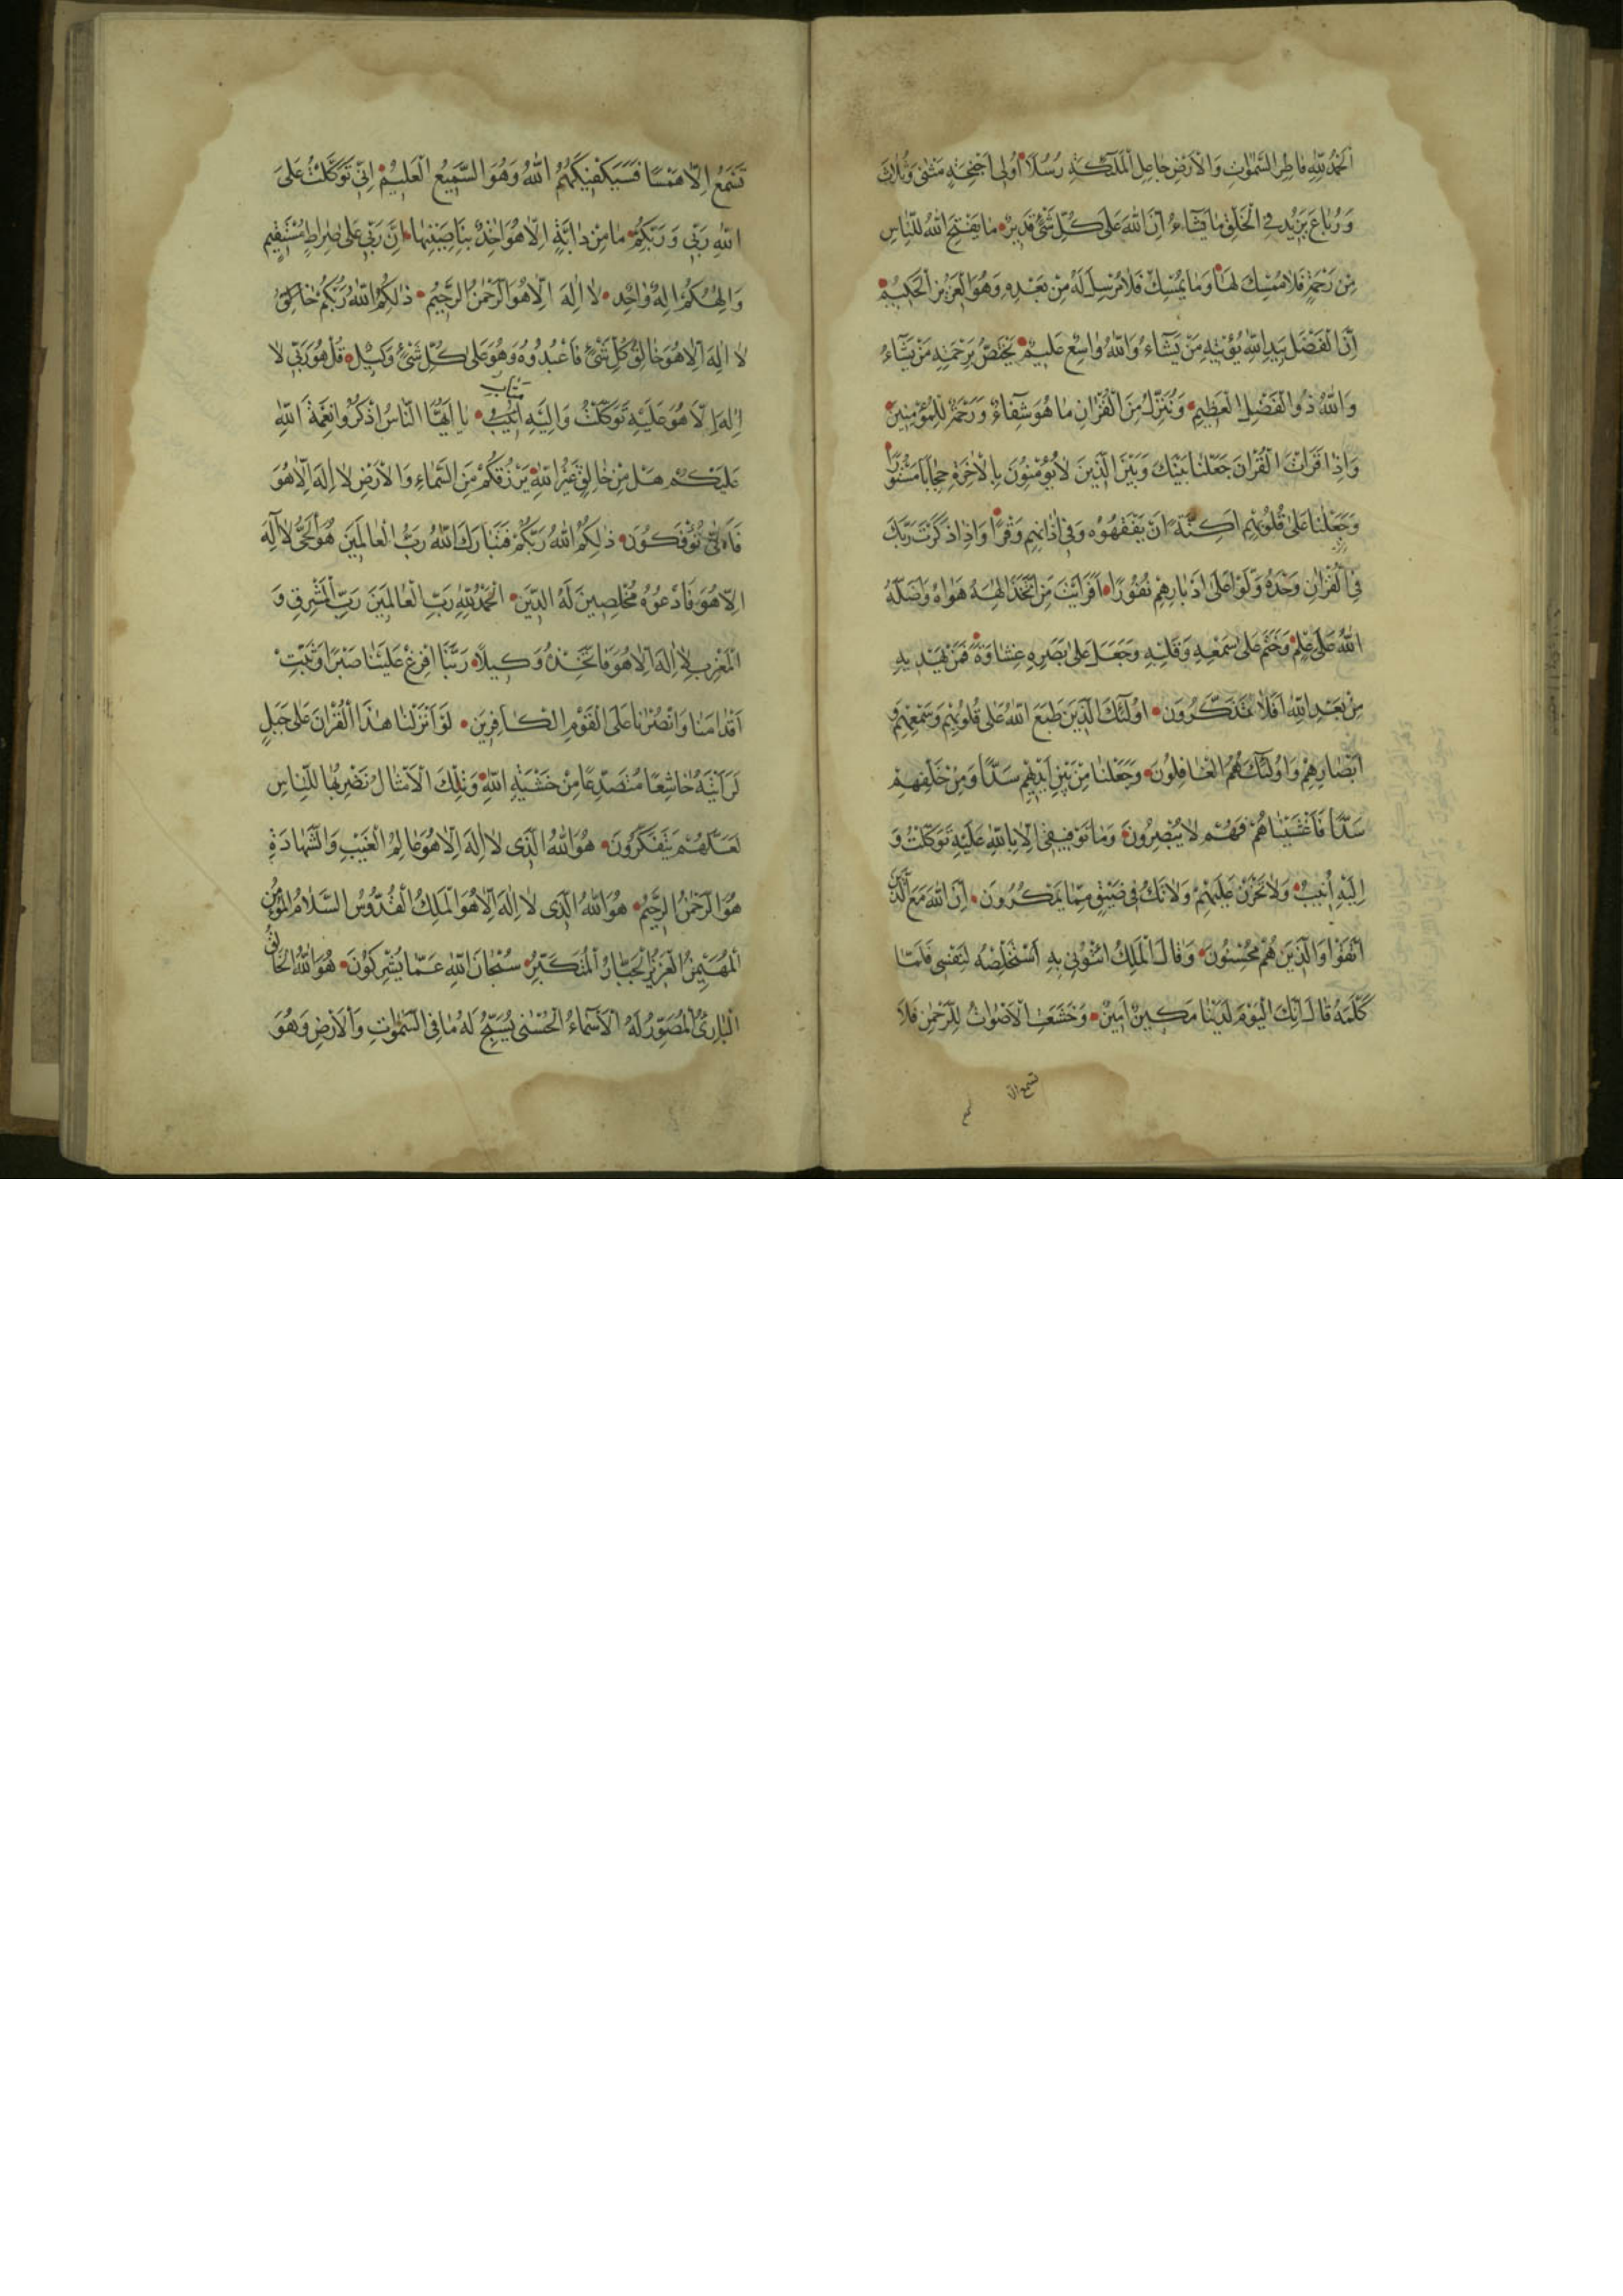 اَلْحَمْدُ لِلّٰهِ فَاطِرِ السَّمٰوَاتِ وَالْاَرْضِ جَاعِلِ الْمَلٰٓئِكَةِ رُسُلًا اُولِى اَجْنِحَةٍ مَثْنٰى وَثُلٰثَ
وَرُبَاعَ يَزِيْدُ فِى الْخَلْقِ مَا يَشَاءُ اِنَّ اللّٰهَ عَلٰى كُلِّ شَىْءٍ قَدِيْرٌ مَا يَفْتَحِ اللّٰهُ لِلنَّاسِ
مِنْ رَحْمَةٍ فَلَا مُمْسِكَ لَهَا وَمَا يُمْسِكْ فَلَا مُرْسِلَ لَهُ مِنْ بَعْدِهِ وَهُوَ الْعَزِيْزُ الْحَكِيْمُ
اِنَّ الْفَضْلَ بِيَدِ اللّٰهِ يُؤْتِيْهِ مَنْ يَشَاءُ وَاللّٰهُ وَاسِعٌ عَلِيْمٌ يَخْتَصُّ بِرَحْمَتِهِ مَنْ يَشَاءُ
وَاللّٰهُ ذُو الْفَضْلِ الْعَظِيْمِ وَنُنَزِّلُ مِنَ الْقُرْاٰنِ مَا هُوَ شِفَاءٌ وَرَحْمَةٌ لِلْمُؤْمِنِيْنَ
وَاِذَا قَرَاْتَ الْقُرْاٰنَ جَعَلْنَا بَيْنَكَ وَبَيْنَ الَّذِيْنَ لَا يُؤْمِنُوْنَ بِالْاٰخِرَةِ حِجَابًا مَسْتُوْرًا
وَجَعَلْنَا عَلٰى قُلُوْبِهِمْ اَكِنَّةً اَنْ يَفْقَهُوْهُ وَفِى اٰذَانِهِمْ وَقْرًا وَاِذَا ذَكَرْتَ رَبَّكَ
فِى الْقُرْاٰنِ وَحْدَهُ وَلَّوْا عَلٰى اَدْبَارِهِمْ نُفُوْرًا اَفَرَاَيْتَ مَنِ اتَّخَذَ اِلٰهَهُ هَوَاهُ وَاَضَلَّهُ
اللّٰهُ عَلٰى عِلْمٍ وَخَتَمَ عَلٰى سَمْعِهِ وَقَلْبِهِ وَجَعَلَ عَلٰى بَصَرِهِ غِشَاوَةً فَمَنْ يَهْدِيْهِ
مِنْ بَعْدِ اللّٰهِ اَفَلَا تَذَكَّرُوْنَ اُولٰٓئِكَ الَّذِيْنَ طَبَعَ اللّٰهُ عَلٰى قُلُوْبِهِمْ وَسَمْعِهِمْ وَ
اَبْصَارِهِمْ وَاُولٰٓئِكَ هُمُ الْغَافِلُوْنَ وَجَعَلْنَا مِنْ بَيْنِ اَيْدِيْهِمْ سَدًّا وَمِنْ خَلْفِهِمْ
سَدًّا فَاَغْشَيْنَاهُمْ فَهُمْ لَا يُبْصِرُوْنَ وَمَا تَوْفِيْقِى اِلَّا بِاللّٰهِ عَلَيْهِ تَوَكَّلْتُ وَ
اِلَيْهِ اُنِيْبُ وَلَا تَحْزَنْ عَلَيْهِمْ وَلَا تَكُ فِى ضَيْقٍ مِمَّا يَمْكُرُوْنَ اِنَّ اللّٰهَ مَعَ الَّذِيْنَ
اتَّقَوْا وَالَّذِيْنَ هُمْ مُحْسِنُوْنَ وَقَالَ الْمَلِكُ ائْتُوْنِى بِهِ اَسْتَخْلِصْهُ لِنَفْسِى فَلَمَّا
كَلَّمَهُ قَالَ اِنَّكَ الْيَوْمَ لَدَيْنَا مَكِيْنٌ اَمِيْنٌ وَخَشَعَتِ الْاَصْوَاتُ لِلرَّحْمٰنِ فَلَا
تسمع الا
تَسْمَعُ اِلَّا هَمْسًا فَسَيَكْفِيْكَهُمُ اللّٰهُ وَهُوَ السَّمِيْعُ الْعَلِيْمُ اِنِّى تَوَكَّلْتُ عَلَى
اللّٰهِ رَبِّى وَرَبِّكُمْ مَا مِنْ دَابَّةٍ اِلَّا هُوَ اٰخِذٌ بِنَاصِيَتِهَا اِنَّ رَبِّى عَلٰى صِرَاطٍ مُسْتَقِيْمٍ
وَاِلٰهُكُمْ اِلٰهٌ وَاحِدٌ لَا اِلٰهَ اِلَّا هُوَ الرَّحْمٰنُ الرَّحِيْمُ ذٰلِكُمُ اللّٰهُ رَبُّكُمْ خَالِقُ
لَا اِلٰهَ اِلَّا هُوَ خَالِقُ كُلِّ شَىْءٍ فَاعْبُدُوْهُ وَهُوَ عَلٰى كُلِّ شَىْءٍ وَكِيْلٌ قُلْ هُوَ رَبِّى لَا
متاب
اِلٰهَ اِلَّا هُوَ عَلَيْهِ تَوَكَّلْتُ وَاِلَيْهِ اُنِيْبُ يَا اَيُّهَا النَّاسُ اذْكُرُوْا نِعْمَةَ اللّٰهِ
عَلَيْكُمْ هَلْ مِنْ خَالِقٍ غَيْرُ اللّٰهِ يَرْزُقُكُمْ مِنَ السَّمَاءِ وَالْاَرْضِ لَا اِلٰهَ اِلَّا هُوَ
فَاَنّٰى تُؤْفَكُوْنَ ذٰلِكُمُ اللّٰهُ رَبُّكُمْ فَتَبَارَكَ اللّٰهُ رَبُّ الْعَالَمِيْنَ هُوَ الْحَىُّ لَا اِلٰهَ
اِلَّا هُوَ فَادْعُوْهُ مُخْلِصِيْنَ لَهُ الدِّيْنَ اَلْحَمْدُ لِلّٰهِ رَبِّ الْعَالَمِيْنَ رَبُّ الْمَشْرِقِ وَ
الْمَغْرِبِ لَا اِلٰهَ اِلَّا هُوَ فَاتَّخِذْهُ وَكِيْلًا رَبَّنَا اَفْرِغْ عَلَيْنَا صَبْرًا وَثَبِّتْ
اَقْدَامَنَا وَانْصُرْنَا عَلَى الْقَوْمِ الْكَافِرِيْنَ لَوْ اَنْزَلْنَا هٰذَا الْقُرْاٰنَ عَلٰى جَبَلٍ
لَرَاَيْتَهُ خَاشِعًا مُتَصَدِّعًا مِنْ خَشْيَةِ اللّٰهِ وَتِلْكَ الْاَمْثَالُ نَضْرِبُهَا لِلنَّاسِ
لَعَلَّهُمْ يَتَفَكَّرُوْنَ هُوَ اللّٰهُ الَّذِى لَا اِلٰهَ اِلَّا هُوَ عَالِمُ الْغَيْبِ وَالشَّهَادَةِ
هُوَ الرَّحْمٰنُ الرَّحِيْمُ هُوَ اللّٰهُ الَّذِى لَا اِلٰهَ اِلَّا هُوَ الْمَلِكُ الْقُدُّوْسُ السَّلَامُ الْمُؤْمِنُ
الْمُهَيْمِنُ الْعَزِيْزُ الْجَبَّارُ الْمُتَكَبِّرُ سُبْحَانَ اللّٰهِ عَمَّا يُشْرِكُوْنَ هُوَ اللّٰهُ الْخَالِقُ
الْبَارِئُ الْمُصَوِّرُ لَهُ الْاَسْمَاءُ الْحُسْنٰى يُسَبِّحُ لَهُ مَا فِى السَّمٰوَاتِ وَالْاَرْضِ وَهُوَ